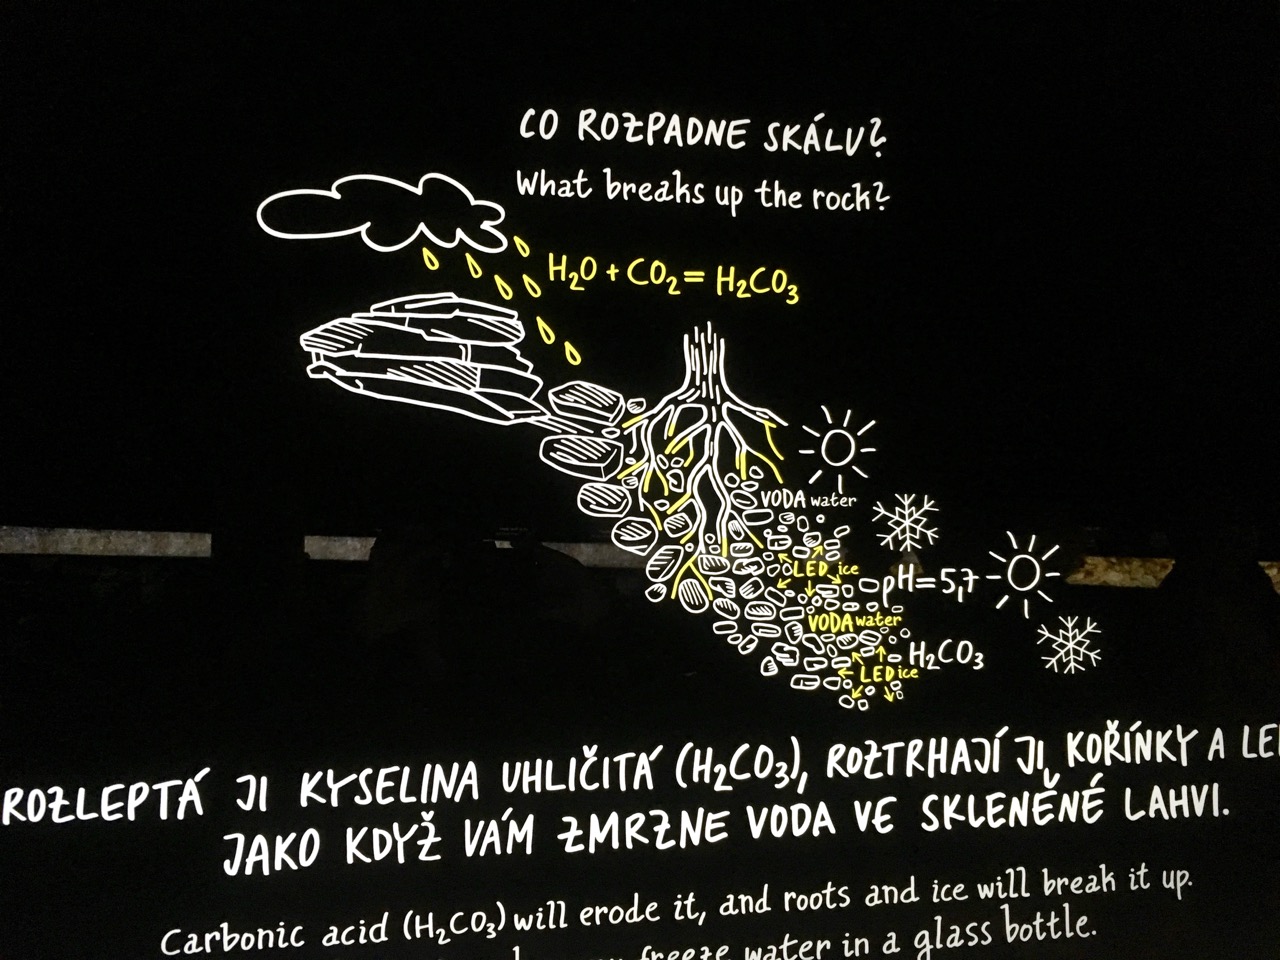 CO ROZPADNE SKÁLU?
What breaks up the rock?
H₂O + CO₂ = H₂CO₃
VODA water
LED ice
pH=5,7
VODA water
H₂CO₃
LED ice
ROZLEPTÁ JI KYSELINA UHLIČITÁ (H₂CO₃), ROZTRHAJÍ JI KOŘÍNKY A
JAKO KDYŽ VÁM ZMRZNE VODA VE SKLENĚNÉ LAHVI.
Carbonic acid (H₂CO₃) will erode it, and roots and ice will break it up.
freeze water in a glass bottle.